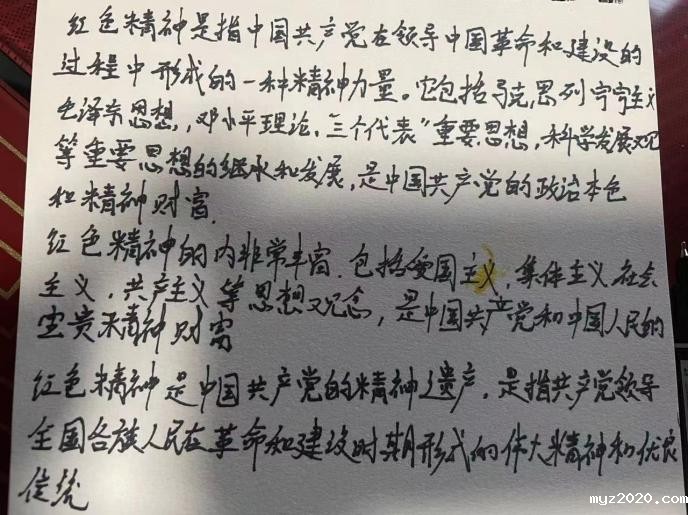 红色精神是指中国共产党在领导中国革命和建设的
过程中形成的一种精神力量。它包括马克思列宁主义
毛泽东思想,邓小平理论,三个代表"重要思想,科学发展观
等重要思想的继承和发展,是中国共产党的政治本色
和精神财富.
红色精神的内非常丰富.包括爱国主义,集体主义,社会
主义,共产主义等思想观念,是中国共产党和中国人民的
宝贵精神财富
红色精神是中国共产党的精神遗产,是指共产党领导
全国各族人民在革命和建设时期形成的伟大精神和优良
传统
myz2020.com